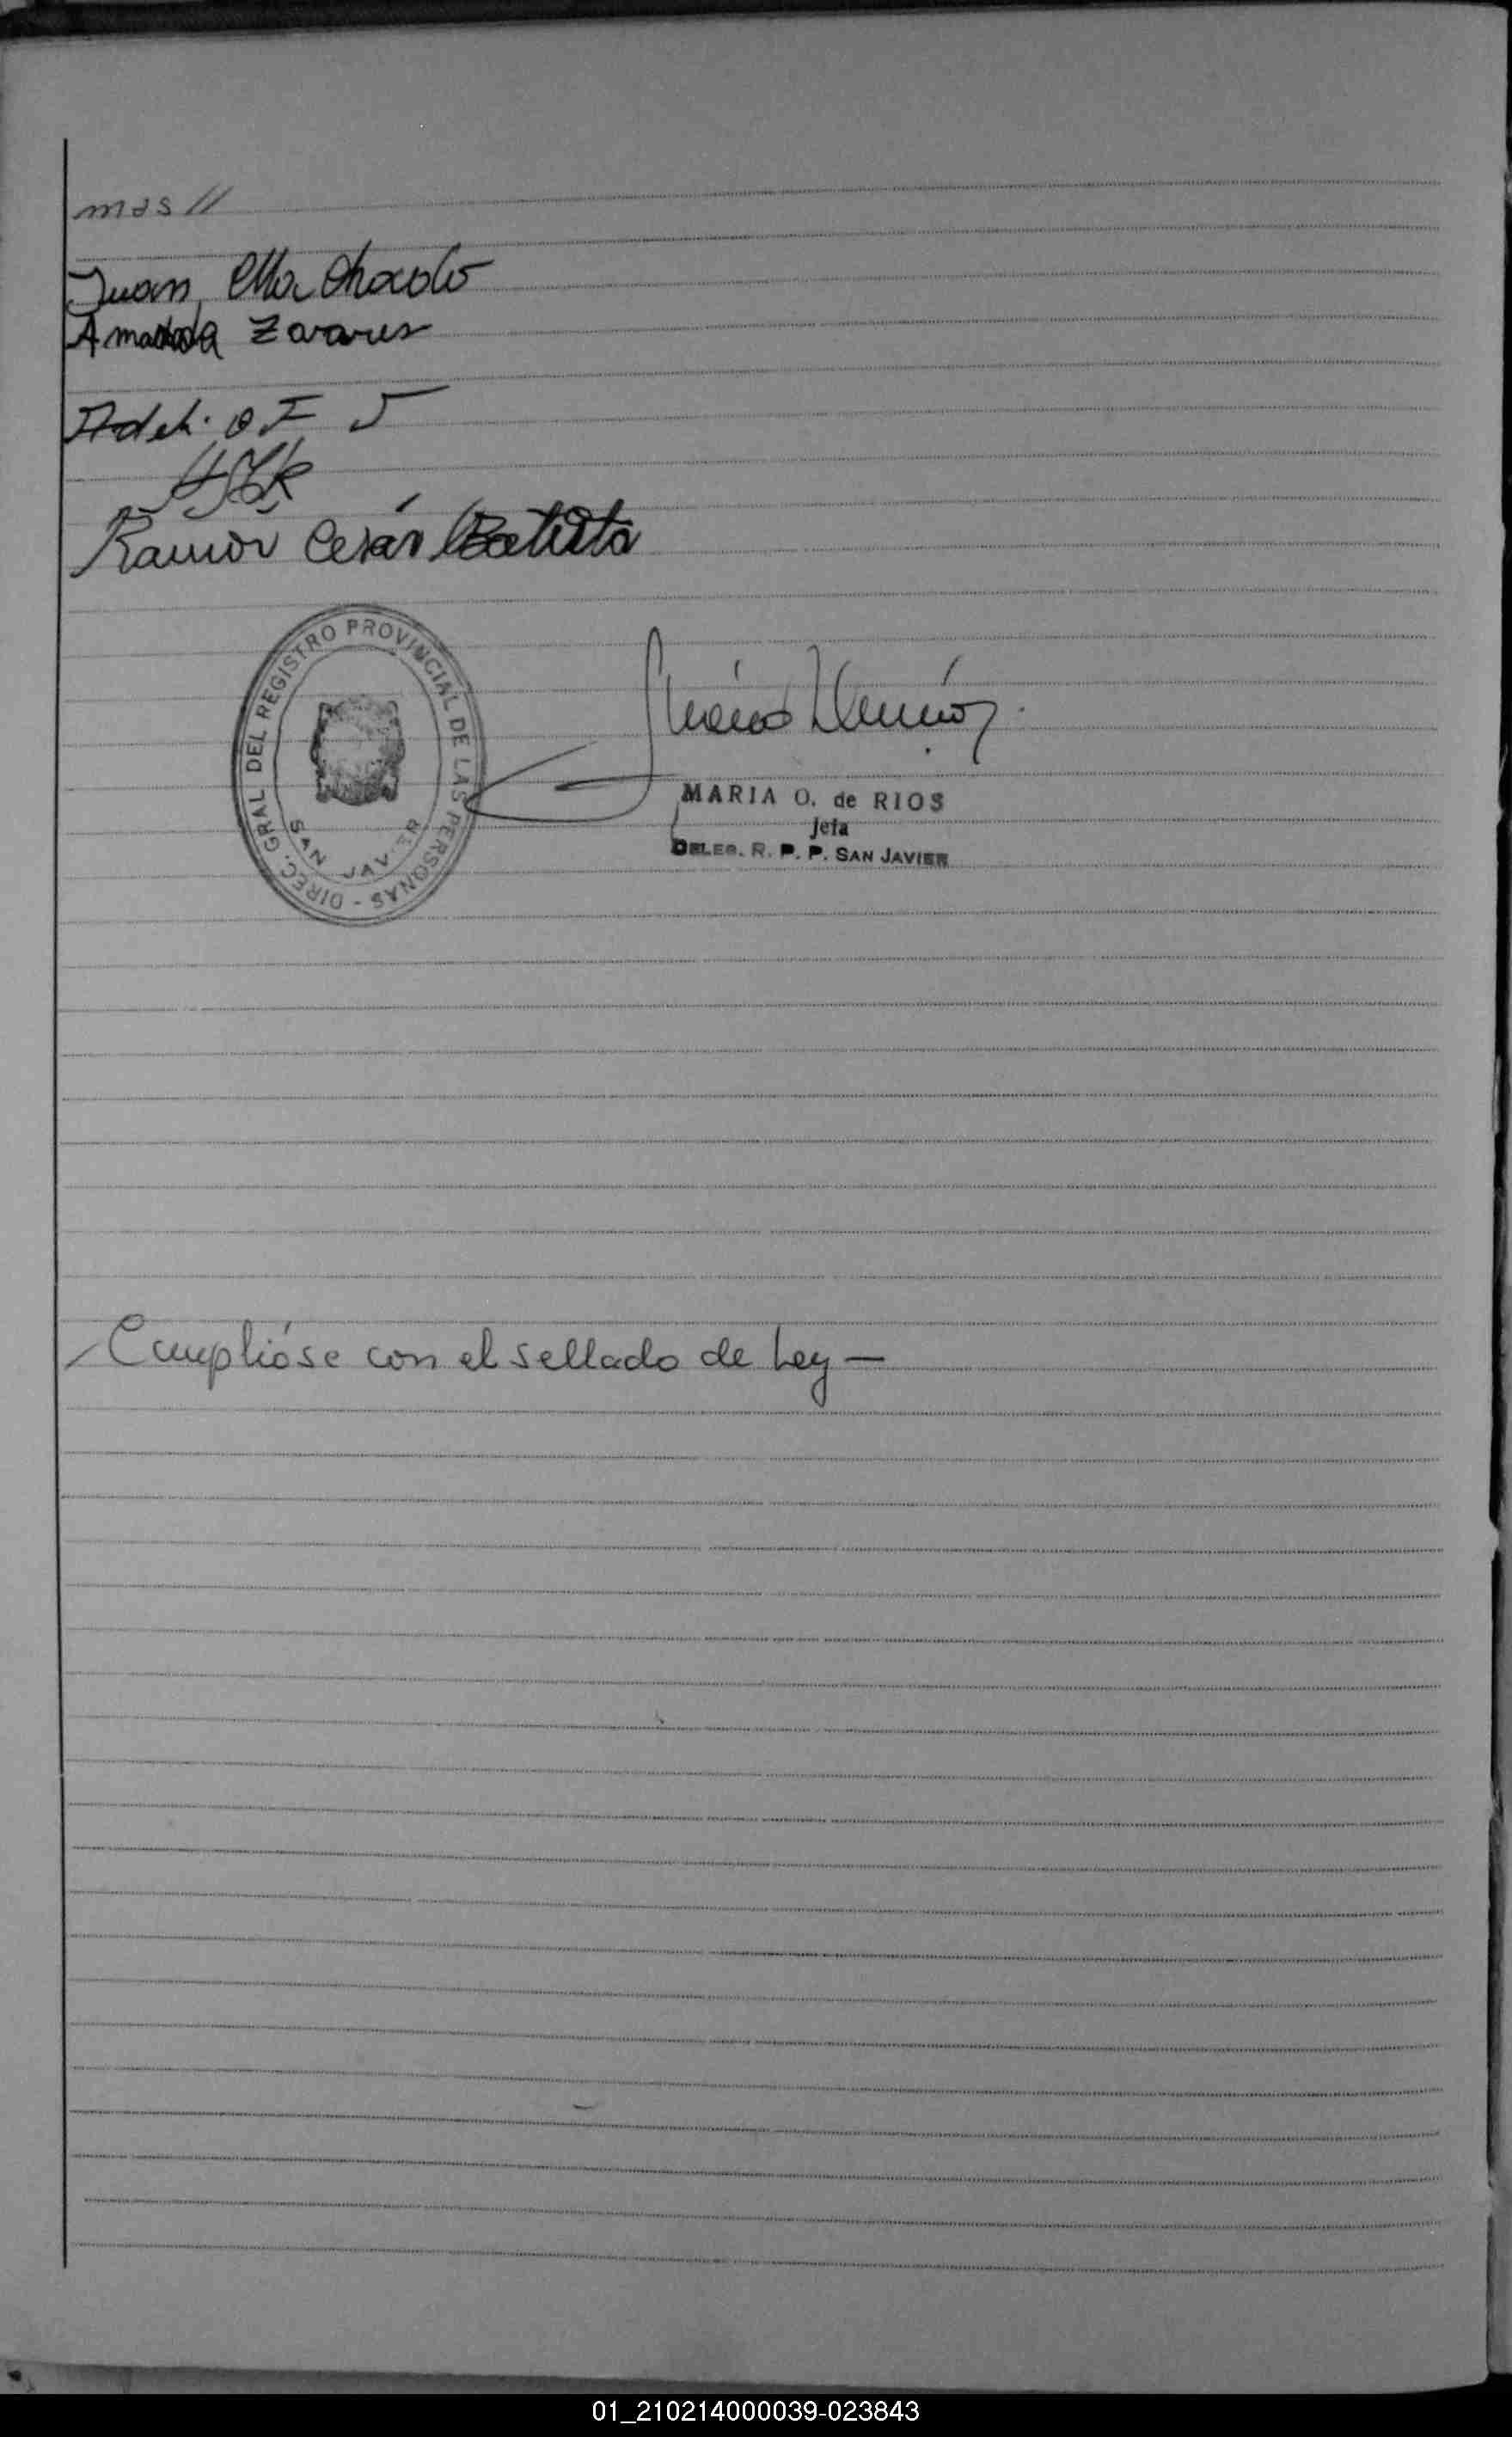 mas //
Juan Machado
Amada Zavares
Ramón César Batista
DIREC. GRAL DEL REGISTRO PROVINCIAL DE LAS PERSONAS -
SAN JAVIER
MARIA O. de RIOS
Jefa
DELEG. R. P. P. SAN JAVIER
Cumplióse con el sellado de Ley —
01_210214000039-023843